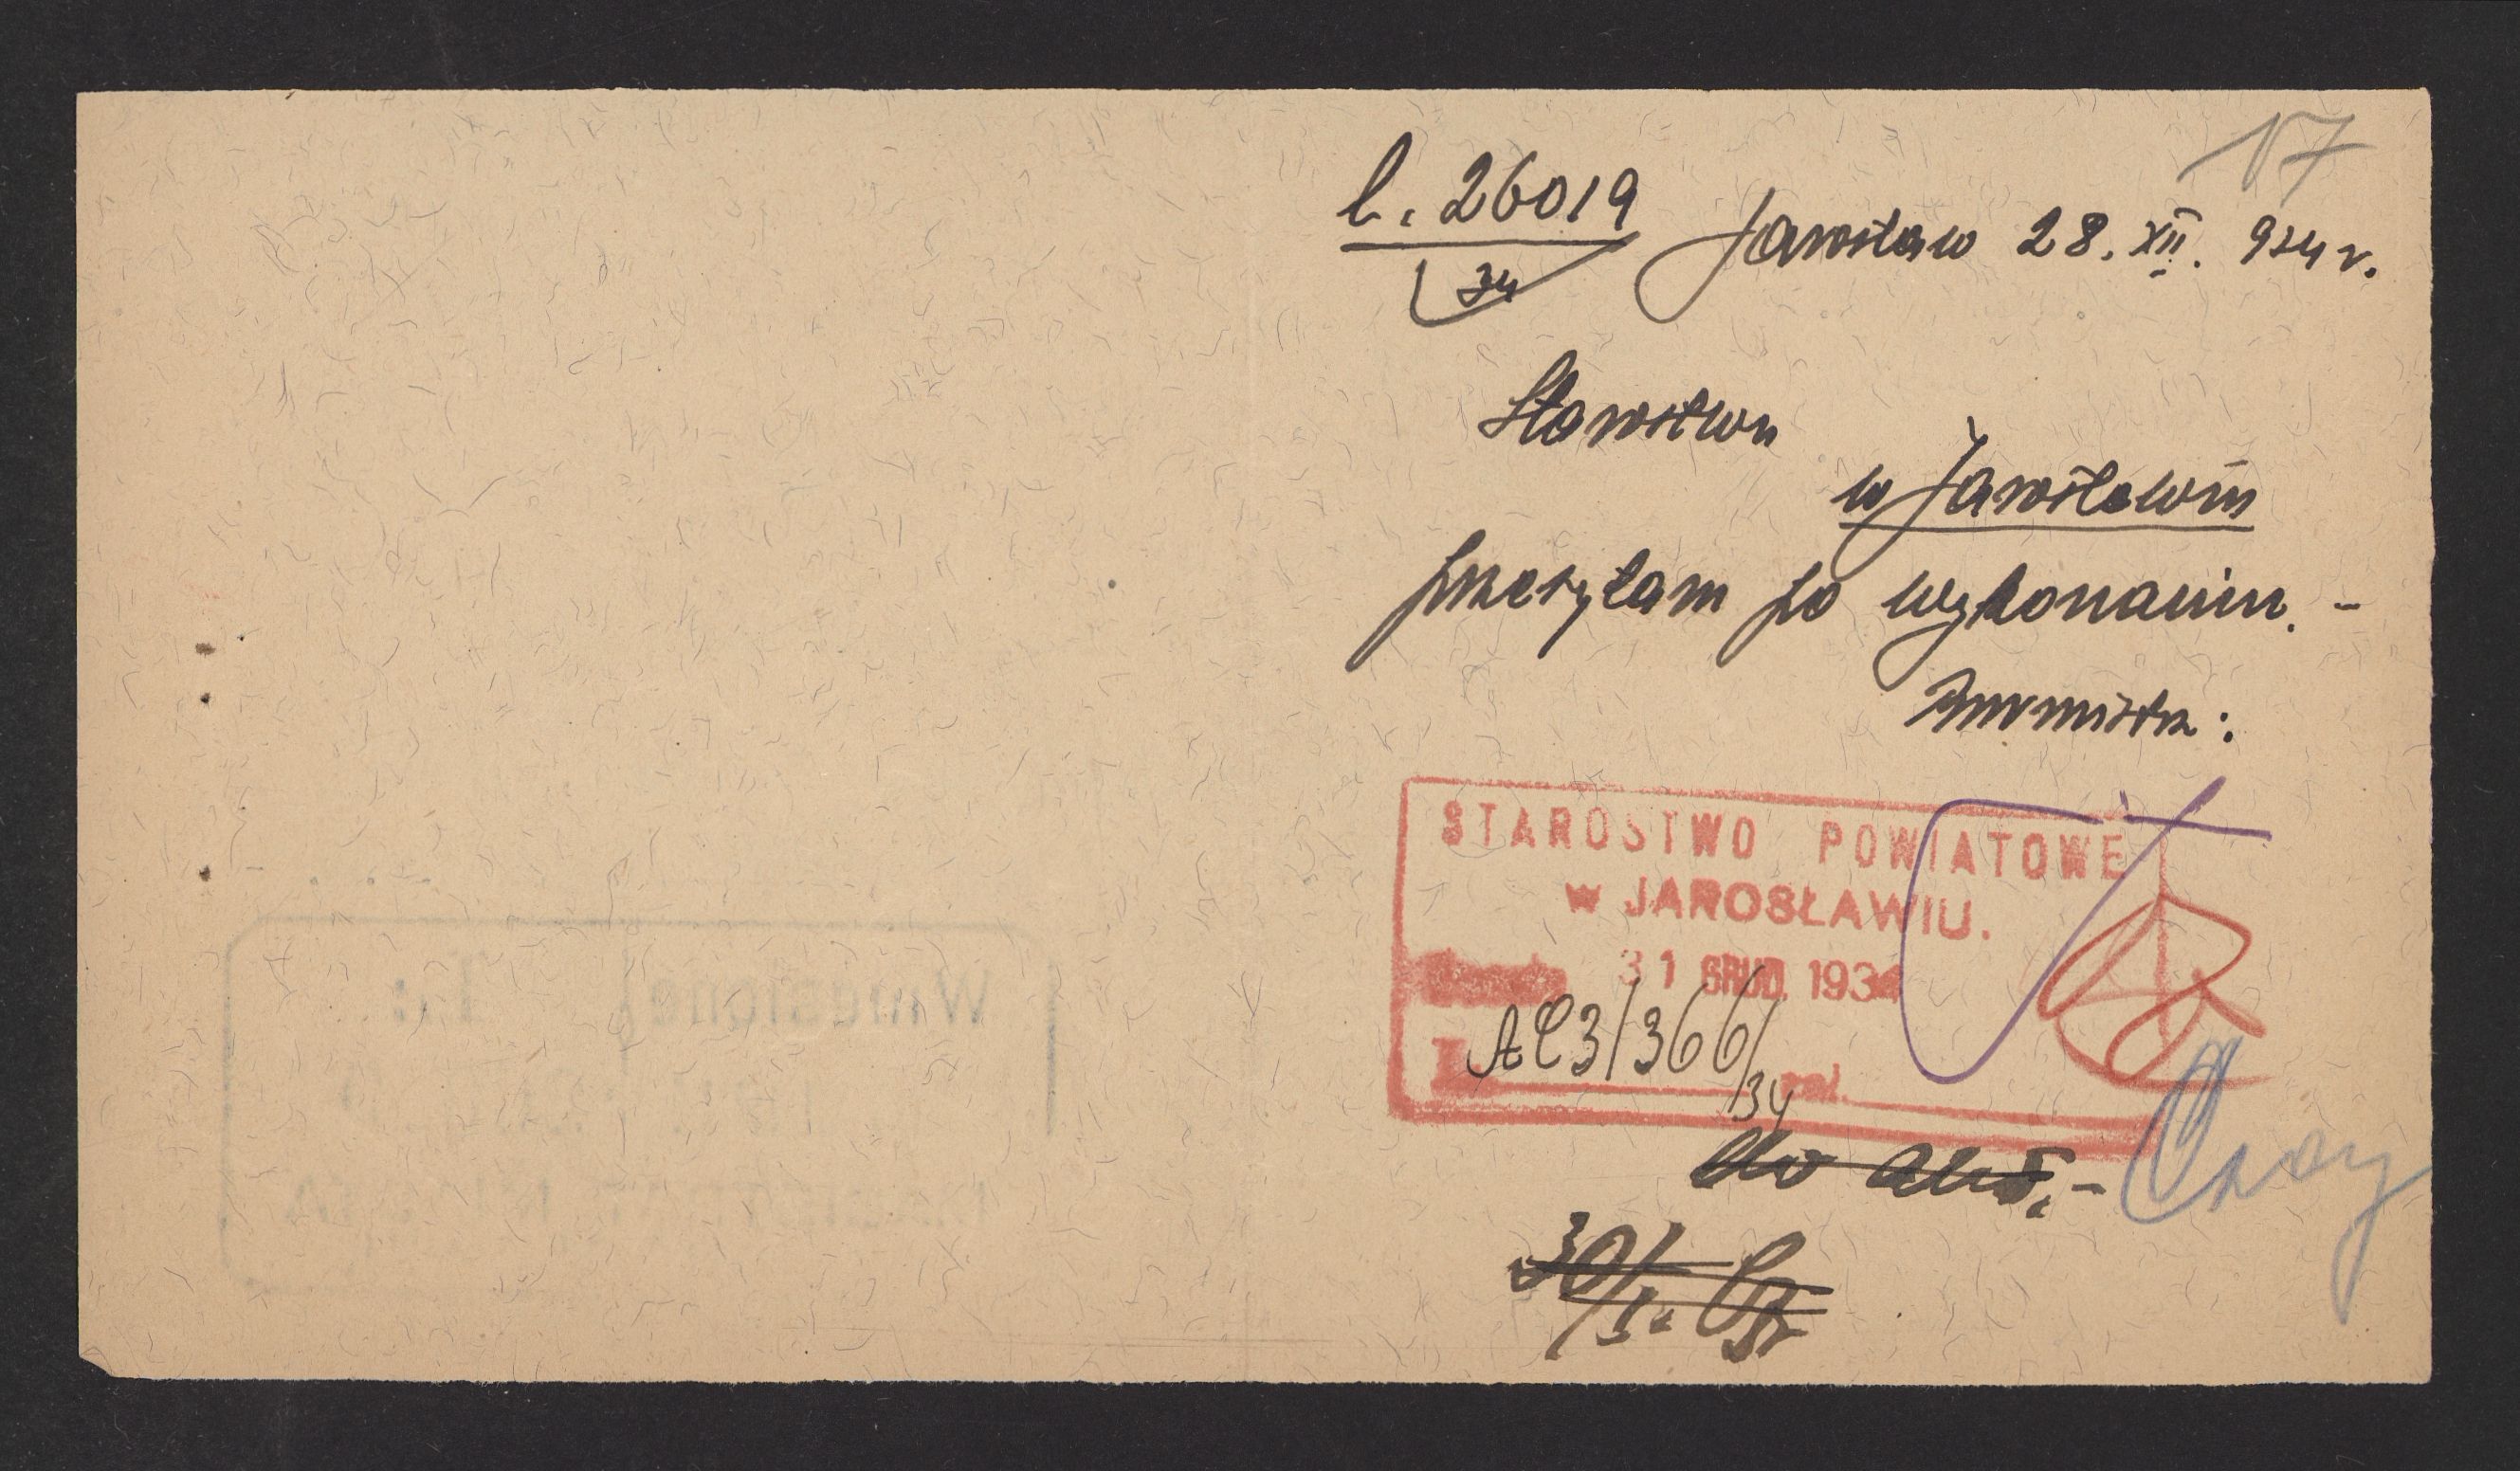 17
L. 26019
34
Jarosław 28. XII. 934 r.
Starostwu
w Jarosławiu
przesyłam po wykonaniu. -
Burmistrz:
STAROSTWO POWIATOWE
w JAROSŁAWIU.
31 GRUD. 1934
L. zał.
30/I.